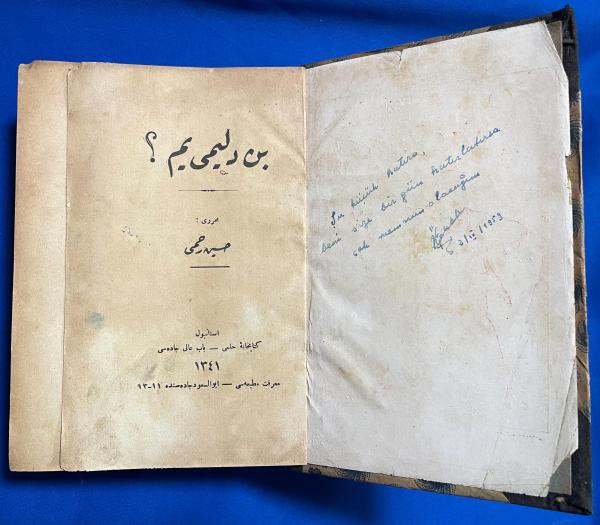 Şu küçük hatıra,
beni size bir gün hatırlatırsa
çok memnun olacağım
بن دلیمی یم ؟
محرری :
حسین رحمی
استانبول
کتابخانهٔ حلمی — باب عالی جاده‌سی
١٣٤١
معرفت مطبعه‌سی — ابوالسعود جاده‌سنده ١١-١٣